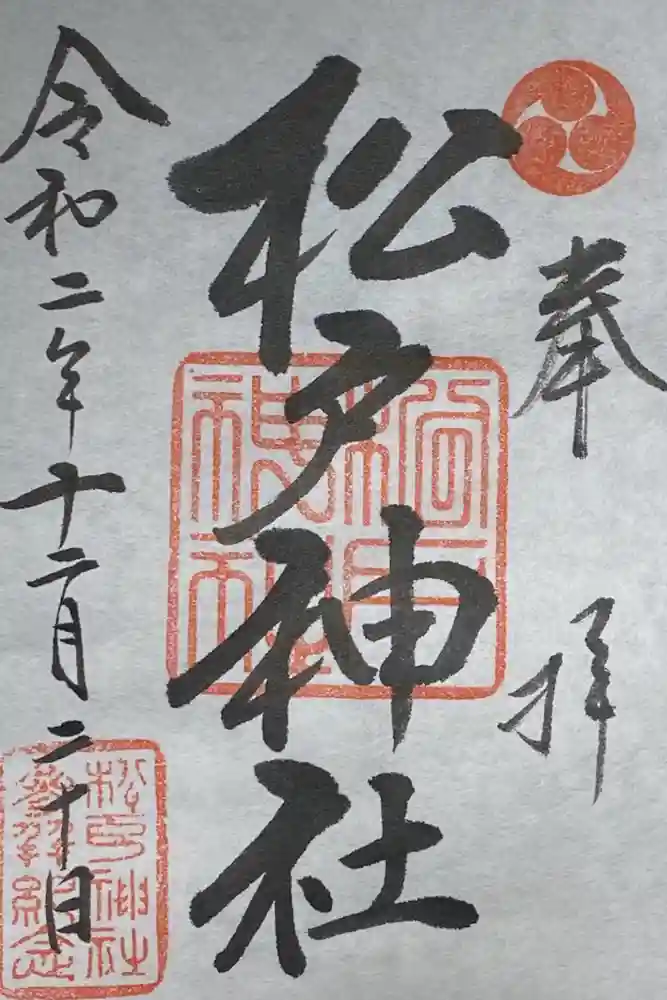 奉拝
松戸神社
松戸神社
令和二年十二月二十日
松戸神社
参拝紀念